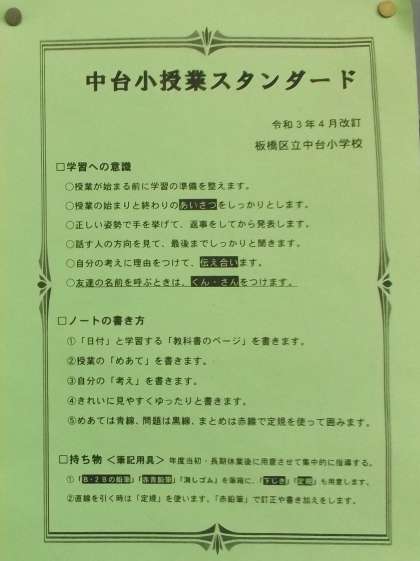 中台小授業スタンダード
令和３年４月改訂
板橋区立中台小学校
□学習への意識
○授業が始まる前に学習の準備を整えます。
○授業の始まりと終わりのあいさつをしっかりとします。
○正しい姿勢で手を挙げて、返事をしてから発表します。
○話す人の方向を見て、最後までしっかりと聞きます。
○自分の考えに理由をつけて、伝え合います。
○友達の名前を呼ぶときは、くん・さんをつけます。
□ノートの書き方
①「日付」と学習する「教科書のページ」を書きます。
②授業の「めあて」を書きます。
③自分の「考え」を書きます。
④きれいに見やすくゆったりと書きます。
⑤めあては青線、問題は黒線、まとめは赤線で定規を使って囲みます。
□持ち物 ＜筆記用具＞ 年度当初・長期休業後に用意させて集中的に指導する。
①「B・2Bの鉛筆」「赤青鉛筆」「消しゴム」を筆箱に、「下じき」「定規」も用意します。
②直線を引く時は「定規」を使います。「赤鉛筆」で訂正や書き加えをします。